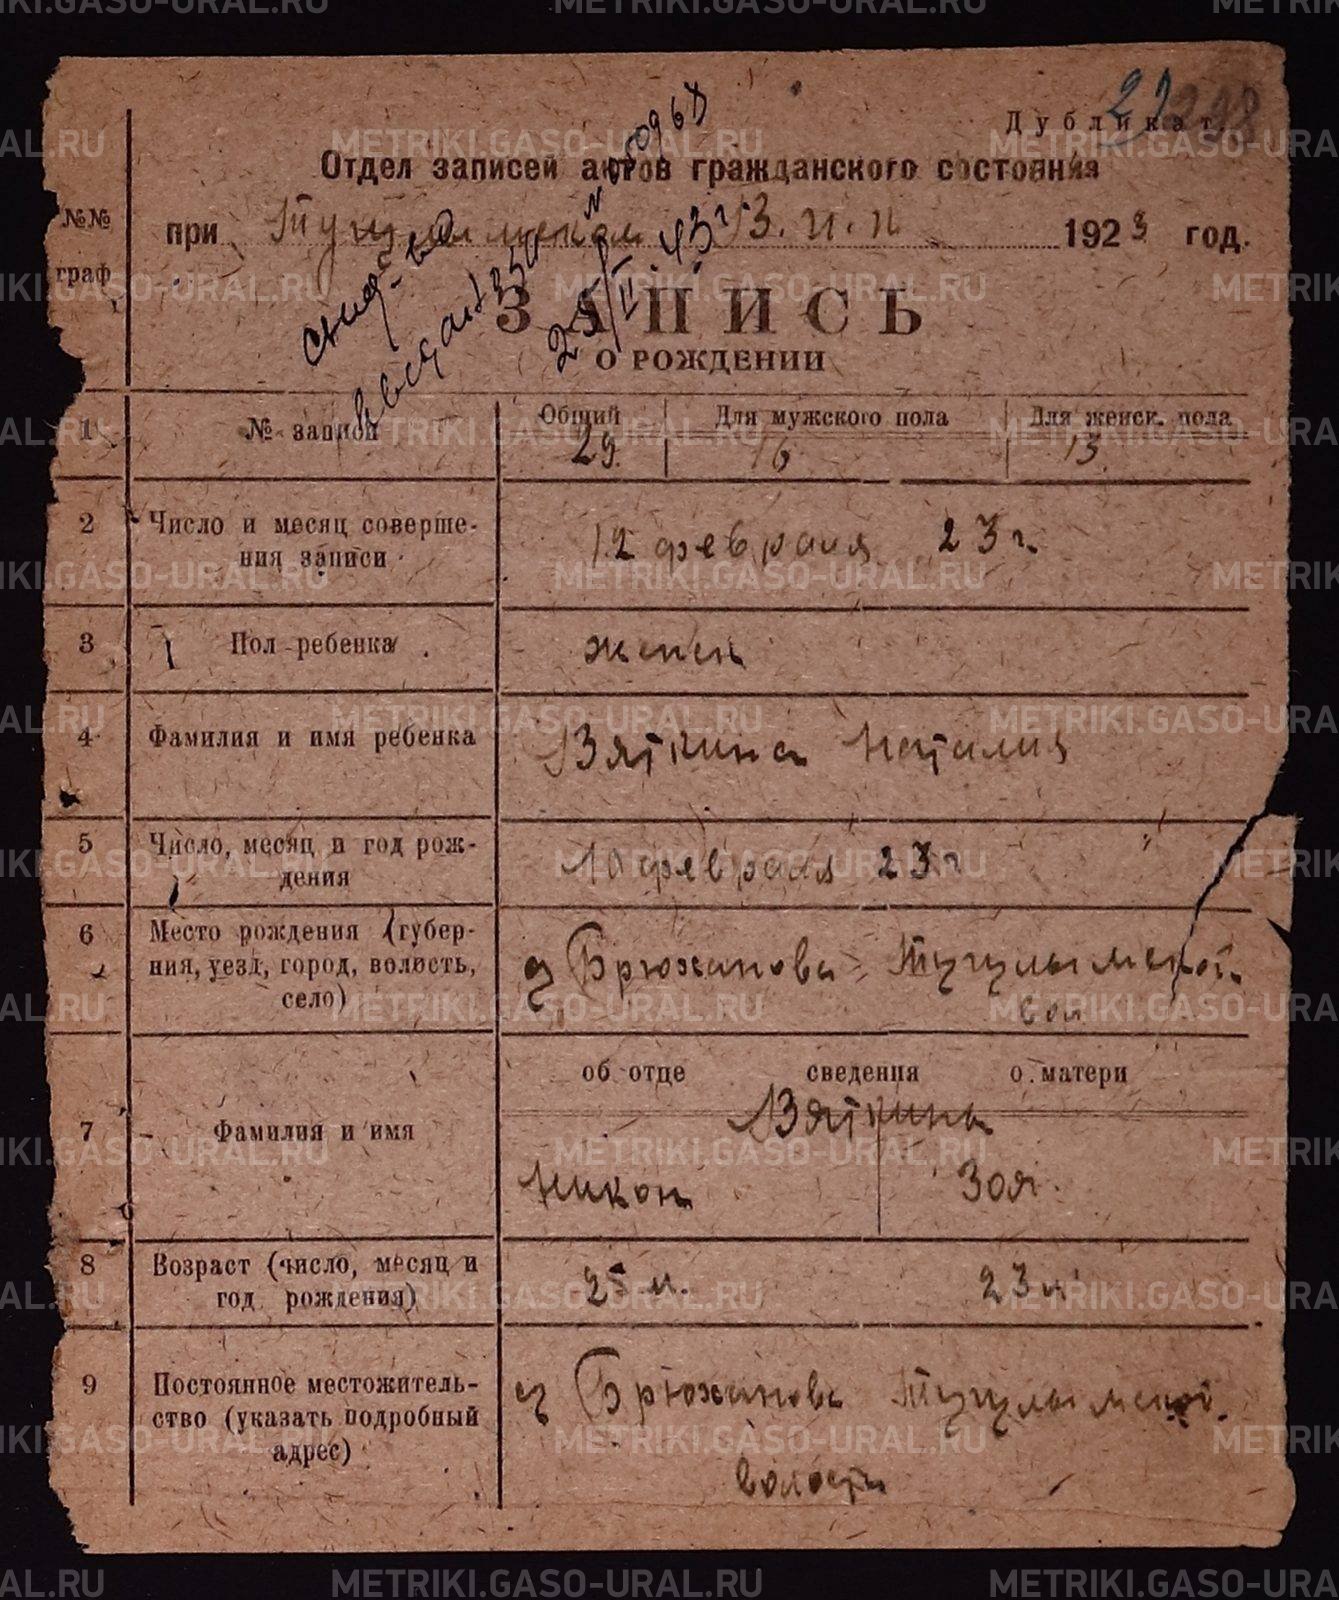 Дубликат.
Отдел записей актов гражданского состояния
№№ граф
при Тугулымском В.И.К 1923 год.
свид-во
25/II 43 г
ЗАПИСЬ
О РОЖДЕНИИ
1 № записи Общий Для мужского пола Для женск. пола
29. 16 13.
2 Число и месяц соверше-
ния записи
12 февраля 23 г.
3 Пол ребенка женск
4 Фамилия и имя ребенка Вяткина Наталия
5 Число, месяц и год рож-
дения
10 февраля 23 г
6 Место рождения (губер-
ния, уезд, город, волость,
село)
д Брюханова Тугулымской
вол
об отце сведения о матери
Вяткины
7 Фамилия и имя
Никон Зоя.
8 Возраст (число, месяц и
год рождения)
25 л. 23 л
9 Постоянное местожитель-
ство (указать подробный
адрес)
д Брюханова Тугулымской
волости
METRIKI.GASO-URAL.RU